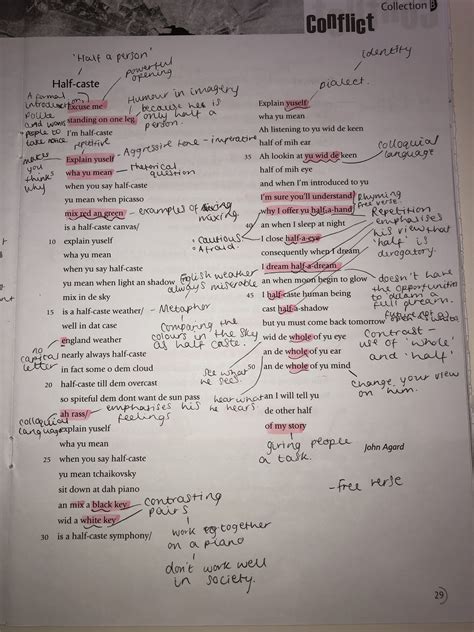 Collection
Conflict
'Half a person'
powerful opening
identity
dialect
Half-caste
A formal introduction
Polite and wants people to take notice
Excuse me
standing on one leg
I'm half-caste
Humour in imagery because he is only half a person.
repetitive
makes you think why
Explain yuself
wha yu mean
Aggressive tone - imperative
Rhetorical question
when you say half-caste
yu mean when picasso
mix red an green
- examples of mixing
is a half-caste canvas/
10 explain yuself
wha yu mean
when yu say half-caste
yu mean when light an shadow
mix in de sky
English weather always miserable
15 is a half-caste weather/
- Metaphor
well in dat case
england weather
no capital letter
nearly always half-caste
in fact some o dem cloud
Comparing the colours in the sky as half caste.
20 half-caste till dem overcast
so spiteful dem dont want de sun pass
ah rass/
- emphasises his feelings
colloquial language
explain yuself
wha yu mean
25 when yu say half-caste
yu mean tchaikovsky
sit down at dah piano
an mix a black key
wid a white key
30 is a half-caste symphony/
contrasting pairs
work together on a piano
don't work well in society.
Explain yuself
wha yu mean
Ah listening to yu wid de keen
half of mih ear
35 Ah lookin at yu wid de keen
colloquial language
half of mih eye
and when I'm introduced to yu
I'm sure you'll understand
why I offer yu half-a-hand
Rhyming
free verse
40 an when I sleep at night
I close half-a-eye
cautious
Afraid
Repetition emphasises his view that 'half' is derogatory.
consequently when I dream
I dream half-a-dream
an when moon begin to glow
doesn't have the opportunities to dream a full dream.
45 I half-caste human being
cast half-a-shadow
but yu must come back tomorrow
wid de whole of yu eye
an de whole of yu ear
an de whole of yu mind
Contrast - use of 'whole' and 'half'
see what he sees.
hear what he hears
change your view on him.
an I will tell yu
de other half
of my story
giving people a task.
John Agard
- free verse
29